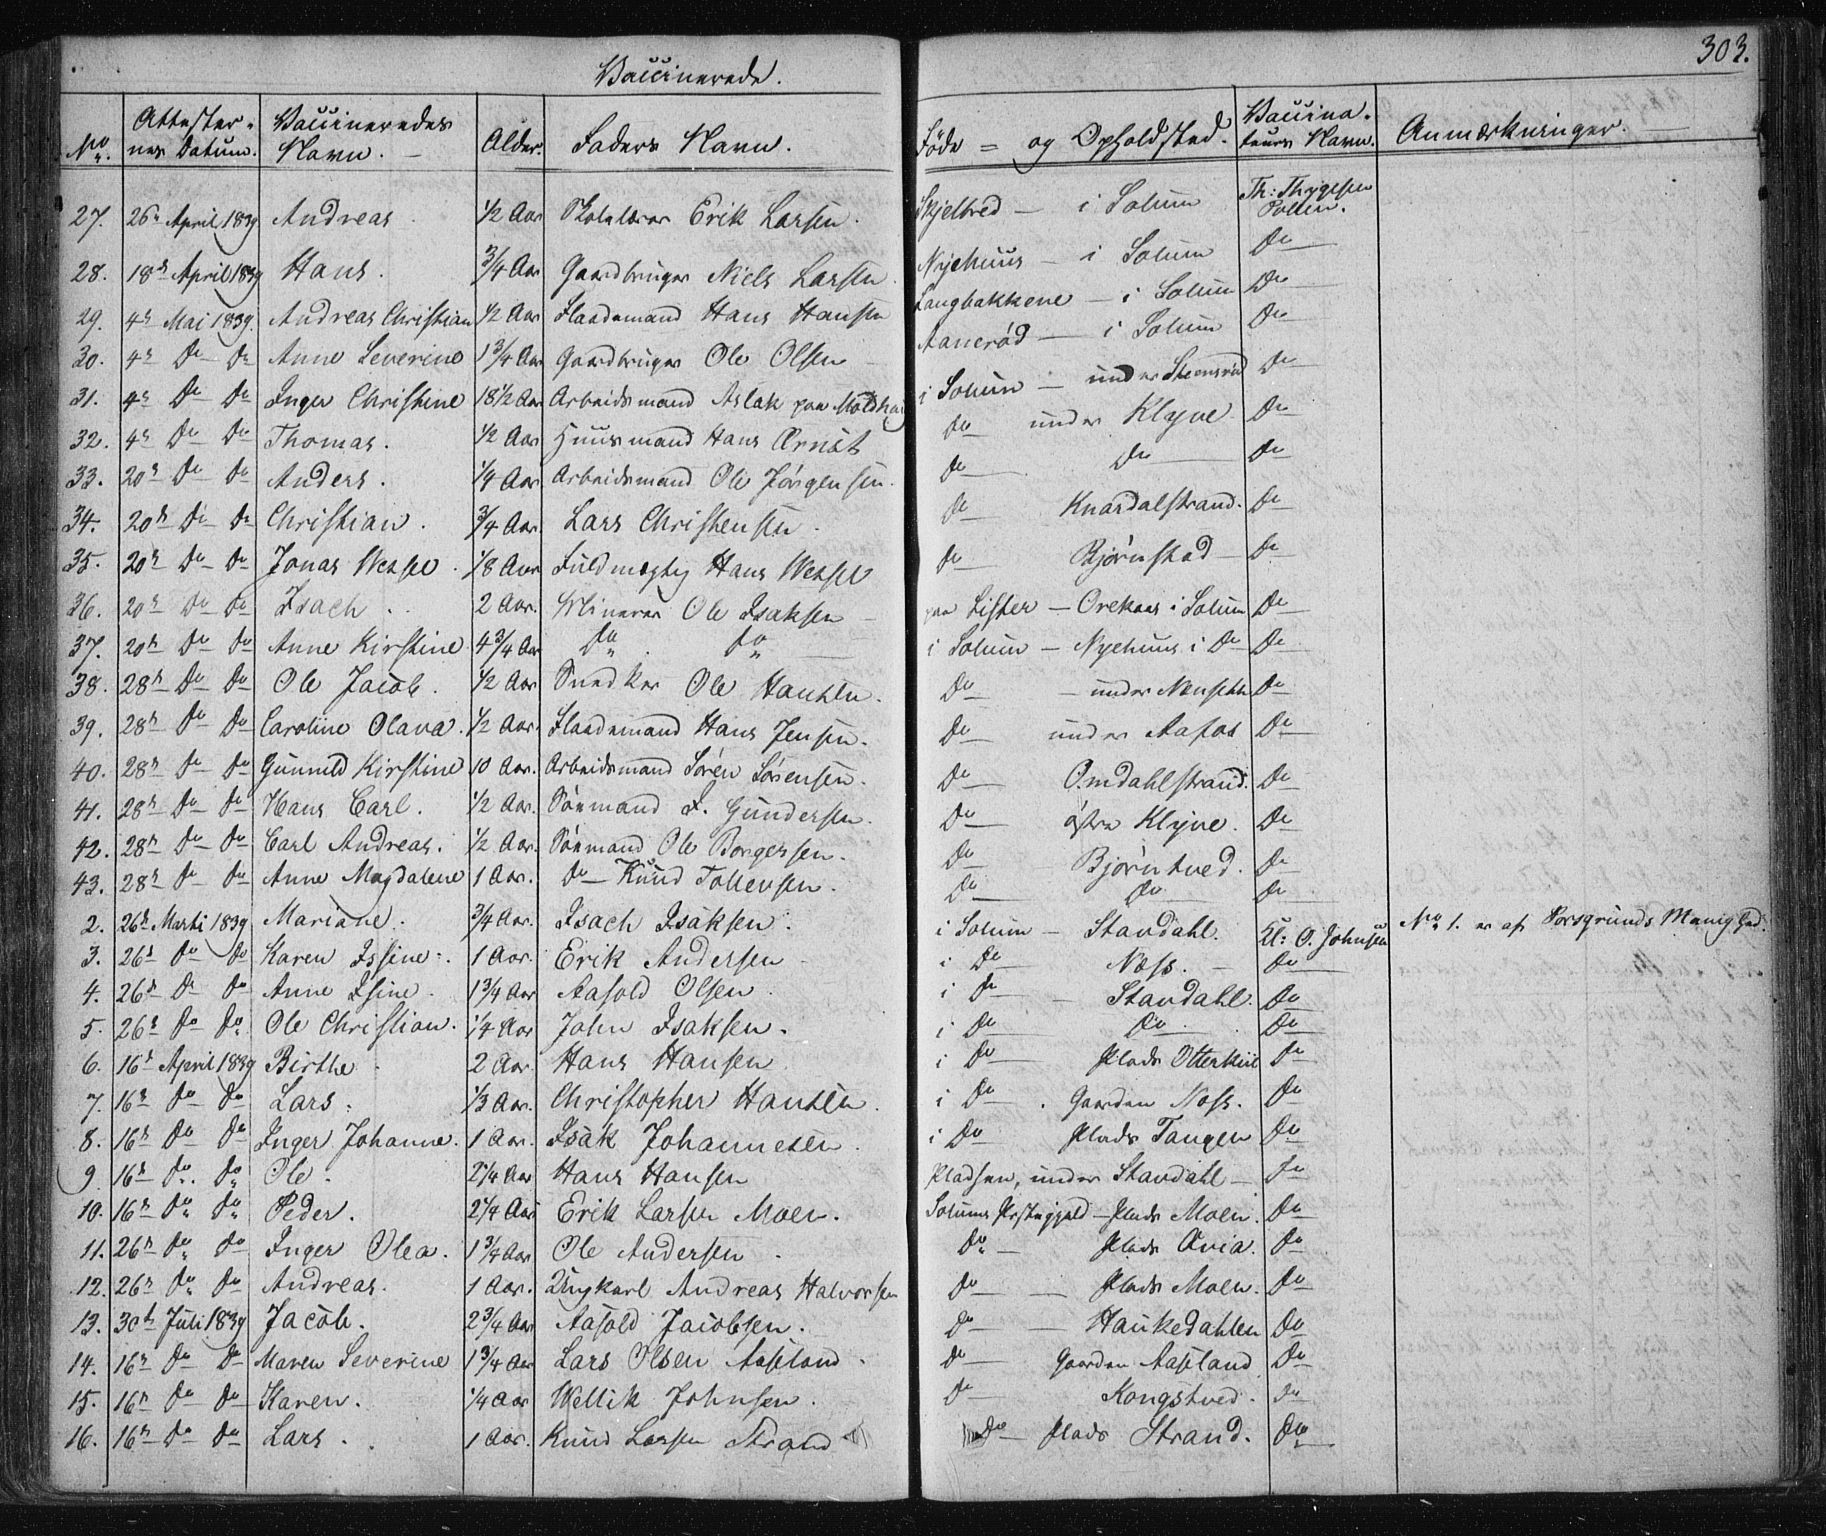 303.
Vaccinerede.
No. | Attesternes Datum. | Vaccineredes Navn. | Alder. | Faders Navn. | Føde- og Opholdsted. | Vaccinateurs Navn. | Anmærkninger.
27. 26de April 1839 Andreas. 1/2 Aar Skolelærer Erik Larsen. Skjelbred – i Solum Th: Thygesen Pollen.
28. 18de April 1839 Hans. 3/4 Aar Gaardbruger Niels Larsen Nyehuus – i Solum Do
29. 4de Mai 1839. Andreas Christian 1/2 Aar Flaademand Hans Hansen Langbakkene – i Solum Do
30. 4de Do Do Anne Severine 1 3/4 Aar Gaardbruger Ole Olsen Aanerød – i Solum Do
31. 4de Do Do Inger Christine 18 1/2 Aar Arbeidsmand Aslak paa i Solum – under Steensrød Do
32. 4de Do Do Thomas. 1/2 Aar Huusmand Hans Ærnst Do under Klyve Do
33. 20de Do Do Anders. 1/4 Aar Arbeidsmand Ole Jørgensen. Do Do Do
34. 20de Do Do Christian. 3/4 Aar Lars Christensen. Do Knardalstrand. Do
35. 20de Do Do Jonas Wessel. 1/8 Aar Fuldmægtig Hans Wessel Do Bjørnstad Do
36. 20de Do Do Isach. 2 Aar. Minerer Ole Isaksen paa Lister – Orekaas i Solum Do
37. 20de Do Do Anne Kirstine 4 3/4 Aar Do Do i Solum – Nyehuus i Do Do
38. 28de Do Do Ole Jacob. 1/2 Aar Snedker Ole Hansen. Do – under Do
39. 28de Do Do Caroline Olava. 1/2 Aar Flaademand Hans Jensen. Do under Aafos Do
40. 28de Do Do Gunnild Kirstine 10 Aar. Arbeidsmand Søren Sørensen. Do Omdahlstrand. Do
41. 28de Do Do Hans Carl. 1/2 Aar. Sømand I. Gundersen. Do østre Klyve. Do
42. 28de Do Do Carl Andreas. 1/2 Aar. Sømand Ole Borgersen. Do Bjørntved. Do
43. 28de Do Do Anne Magdalene 1 Aar. Do Knud Tollevsen. Do Do Do
2. 26de Marti 1839 Mariane. 3/4 Aar. Isach Isaksen. i Solum – Standahl. Cl: O. Johnsen No 1. er af Porsgrunds Menighed.
3. 26de Do Do Karen Issine. 1 Aar. Erik Andersen i Do Næss. Do
4. 26de Do Do Anne Isine. 1 3/4 Aar Aasold Olsen i Do Standahl. Do
5. 26de Do Do Ole Christian. 1/4 Aar John Isaksen. i Do Do Do
6. 16de April 1839 Birthe 2 Aar. Hans Hansen i Do Plads Otterkiil Do
7. 16de Do Do Lars. 1/3 Aar. Christopher Hansen. i Do Gaarden Næss. Do
8. 16de Do Do Inger Johanne. 1 Aar. Isak Johannesen. i Do Plads Tangen Do
9. 16de Do. Do Ole. 2 1/4 Aar Hans Hansen Pladsen, under Standahl Do
10. 16de Do Do Peder. 2 1/4 Aar Erik Larsen Moen. Solums Præstegjeld – Plads Moen. Do
11. 26de Do Do Inger Olea. 1 3/4 Aar Ole Andersen Do Plads Do
12. 26de Do Do Andreas. 1 Aar. Ungkarl Andreas Halvorsen Do Plads Moen. Do
13. 30de Juli 1839 Jacob. 2 3/4 Aar Aasold Jacobsen. Do Haukedahlen Do
14. 16de Do Do Maren Severine 1 3/4 Aar Lars Olsen Aasland. Do Gaarden Aasland Do
15. 16de Do Do Karen. 1/4 Aar Wellik Johnsen. Do Kongstved. Do
16. 16de Do Do Lars. 1 Aar. Knud Larsen Strand Do Plads Strand. Do